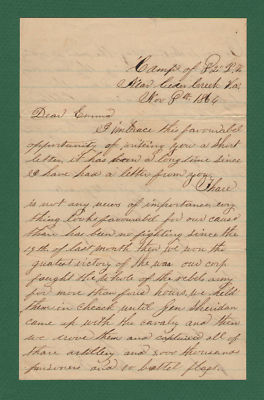 Camp of P. V.
Near Ceder Creek Va.
Nov 8th 1864
Dear Emma
I imbrace this favourabel
opportunity of writing you a short
letter, it has been a long time since
I have had a letter from you.
Thare
is not any news of importance evry
thing looks favourable for our cause
thare has been no fighting since the
19th of last month then we won the
greatest victory of the war our corp
fought the whole of the rebel army
for more than hours. we held
them in cheack until Gen Sheridan
came up with the cavalry and then
we drove them and captured all of
thare artillery and 2000 thousands
prisoners and 10 battel flags.